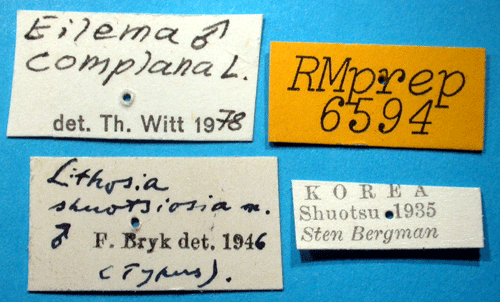 Eilema ♂
complana L.
det. Th. Witt 1978
RMprep
6594
Lithosia
shuotsiosia n.
♂ F. Bryk det. 1946
(Typus).
KOREA
Shuotsu 1935
Sten Bergman